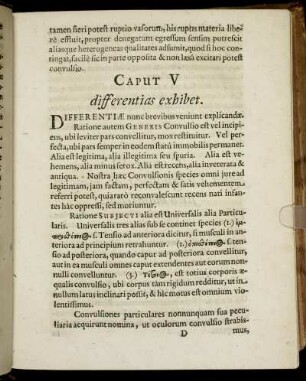 tamen fieri potest ruptio vasorum, his ruptis materia libere effluit, propter denegatum egressum sensim putrescit
aliasque heterogeneas qualitates adsumit, quod si hoc contingat, facile sic in parte opposita & non læsa excitari potest
convulsio.
CAPUT V
differentias exhibet.
DIFFERENTIÆ nunc brevibus veniunt explicandæ.
Ratione autem GENERIS Convulsio est vel incipiens, ubi leviter pars convellitur, mox restituitur. Vel perfecta, ubi pars semper in eodem statu immobilis permanet.
Alia est legitima, alia illegitima seu spuria. Alia est vehemens, alia minus ferox. Alia est recens, alia inveterata &
antiqua. - Nostra hæc Convulsionis species omni jure ad
legitimam, jam factam, perfectam & satis vehementem
referri potest, quia raro reconvalescunt recens nati infantes hâc oppressi, sed moriuntur.
Ratione SUBJECTI alia est Universalis alia Particularis. Universalis tres alias sub se continet species (1.)
s. Tensio ad anteriora dicitur, si musculi in anteriora ad principium retrahuntur. (2.) s. tensio ad posteriora, quando caput ad posteriora convellitur,
aut in ea musculi omnes caput extendentes aut eorum nonnulli convelluntur. (3.) est totius corporis æqualis convulsio, ubi corpus tam rigidum redditur, ut in
nullum latus inclinari possit, & hic motus est omnium violentissimus.
Convulsiones particulares nonnunquam sua peculiaria acquirunt nomina, ut oculorum convulsio strabis-
D mus,